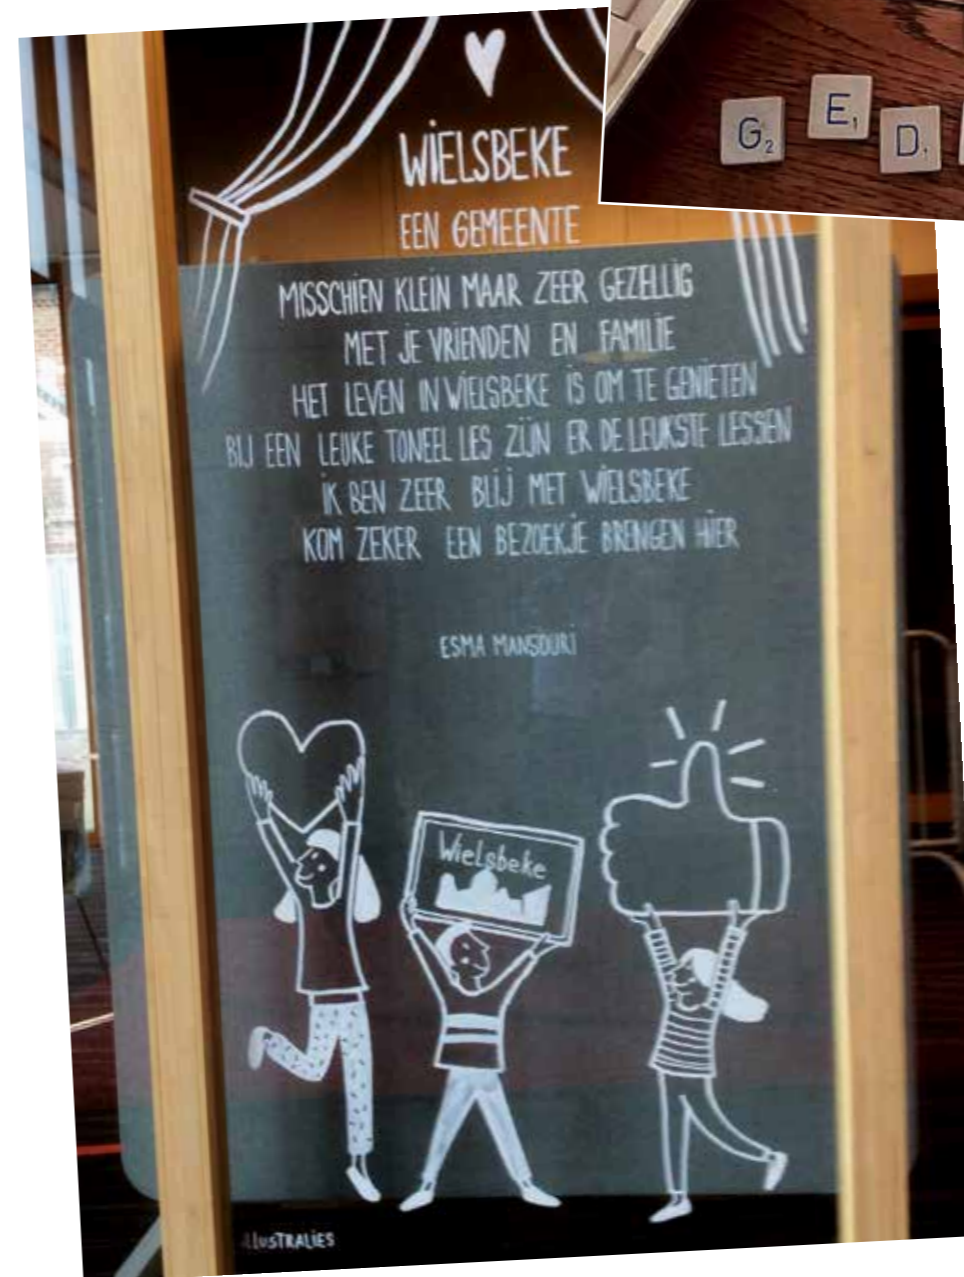 WIELSBEKE
EEN GEMEENTE
MISSCHIEN KLEIN MAAR ZEER GEZELLIG
MET JE VRIENDEN EN FAMILIE
HET LEVEN IN WIELSBEKE IS OM TE GENIETEN
BIJ EEN LEUKE TONEEL LES ZIJN ER DE LEUKSTE LESSEN
IK BEN ZEER BLIJ MET WIELSBEKE
KOM ZEKER EEN BEZOEKJE BRENGEN HIER
ESMA MANSOURI
Wielsbeke
G2 E1 D1